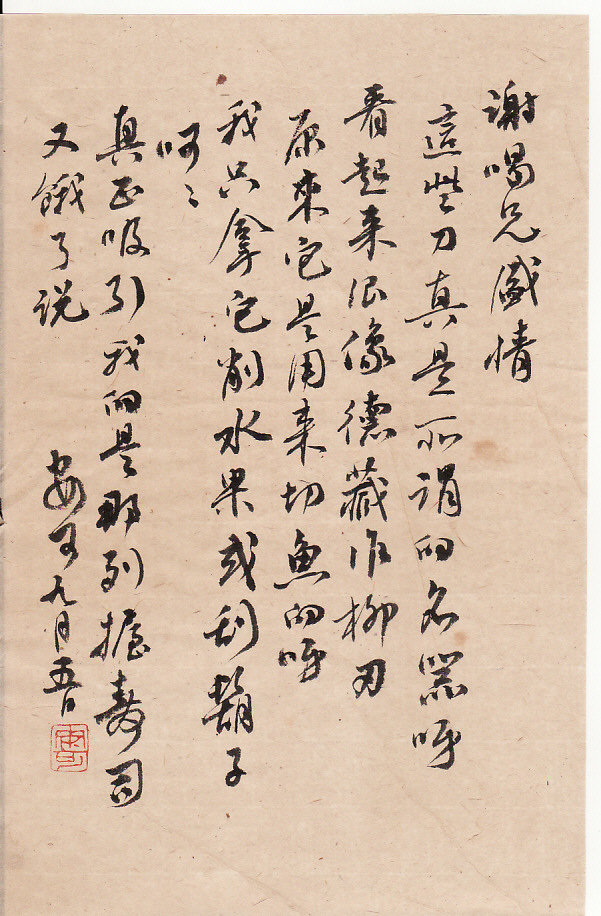 謝喝兄盛情
這些刀真是所謂的名器呀
看起来很像德藏作柳刃
原來它是用来切魚的呀
我只拿它削水果或刮鬍子
呵呵
真正吸引我的是那列握壽司
又餓了说
安可九月五日